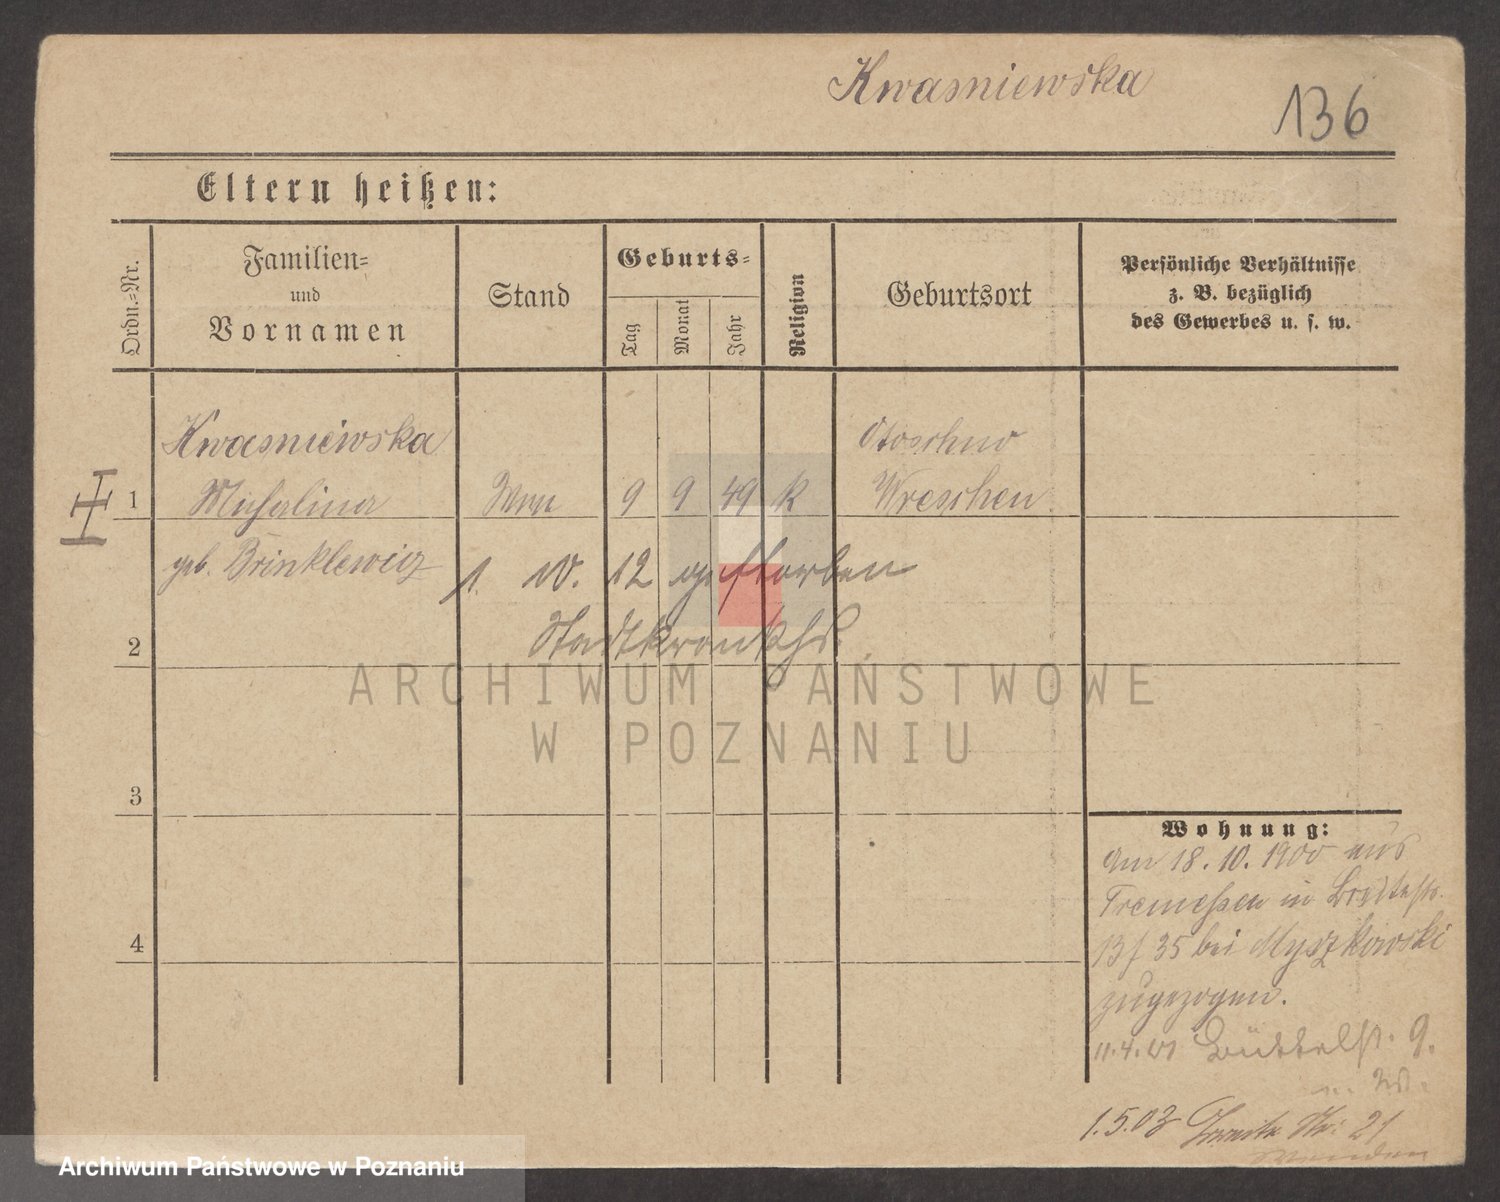 Kwasniewska
136
Eltern heißen:
Ordn.=Nr.
Familien=
und
Vornamen
Stand
Geburts=
Tag
Monat
Jahr
Religion
Geburtsort
Persönliche Verhältnisse
z. B. bezüglich
des Gewerbes u. s. w.
Kwasniewska
1 Michalina 9 9 49 k Wreschen
geb. Brinklewicz
1. 10. 12 gestorben
Stadtkrankhs.
2
ARCHIWUM PAŃSTWOWE
W POZNANIU
3
Wohnung:
Am 18. 10. 1900 aus
Tremessen in Breitestr.
13/35 bei Myszkowski
zugezogen.
4
11.4.01 Büttelst. 9.
1.5.03 21
Archiwum Państwowe w Poznaniu